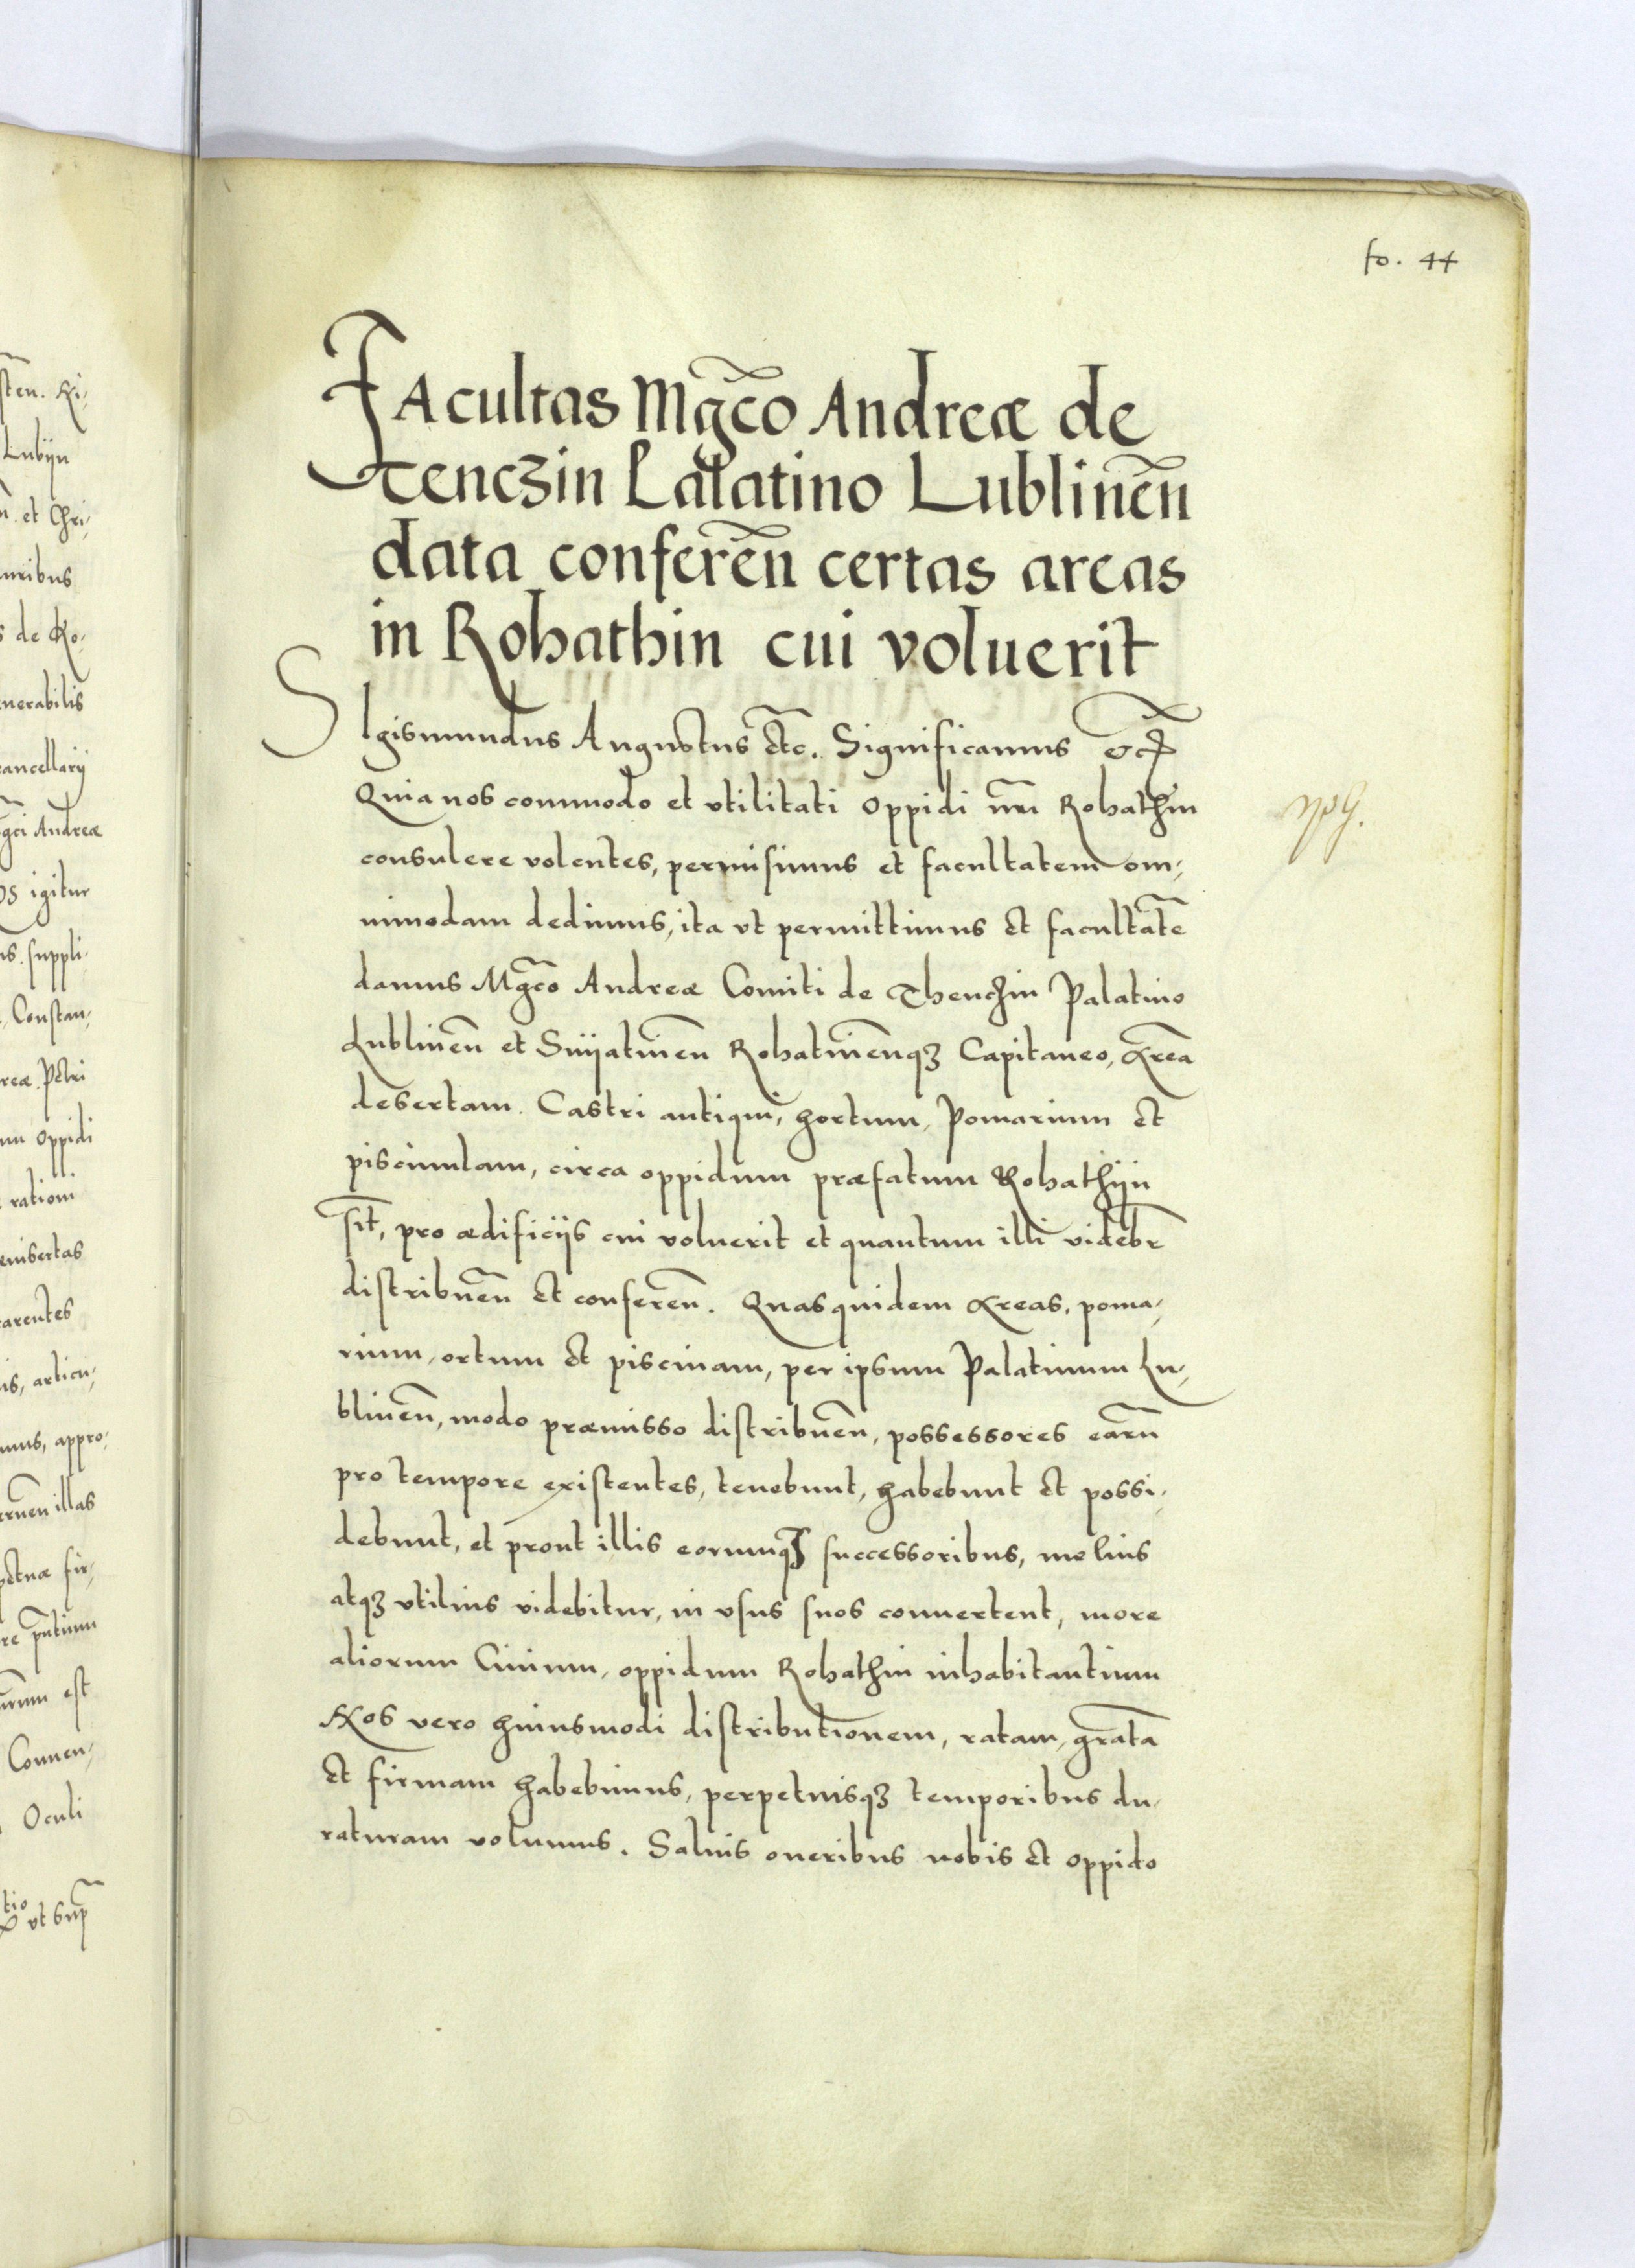 fo. 44
FAcultas Mg̃co Andreæ de
Tenczin Palatino Lublineñ
data confereñ certas areas
in Rohathin cui voluerit
SIgismundus Augustus etc. Significamus etc̃
Quia nos commodo et vtilitati oppidi nr̃i Rohathin
consulere volentes, permisimus et facultatem om,
nimodam dedimus, ita vt permittimus et facultatẽ
damus Mg̃co Andreæ Comiti de Thenczin Palatino
Lublineñ et Snyatineñ Rohatineñqꝫ Capitaneo, Areã
desertam Castri antiqui, hortum, Pomarium et
piscinulam, circa oppidum præfatum Rohathijn
sit̃, pro ædificijs cui voluerit et quantum illi videbr̃
distribueñ et confereñ. Quas quidem Areas, poma,
rium, ortum et piscinam, per ipsum Palatinum Lu,
blineñ, modo præmisso distribueñ, possessores earũ
pro tempore existentes, tenebunt, habebunt et possi,
debunt, et prout illis eorumqꝫ successoribus, melius
atqꝫ vtilius videbitur, in vsus suos conuertent, more
aliorum Ciuium, oppidum Rohathin inhabitantium
Nos vero huiusmodi distributionem, ratam, gratã
et firmam habebimus, perpetuisqꝫ temporibus du,
raturam volumus. Saluis oneribus nobis et oppido
Lubijn
et Chri,
de Ro,
cancellarij
Andreæ
igitur
suppli,
Constan,
Petri
oppidi
rationi
articu,
appro,
illas
fir,
est
Conuen,
Oculi